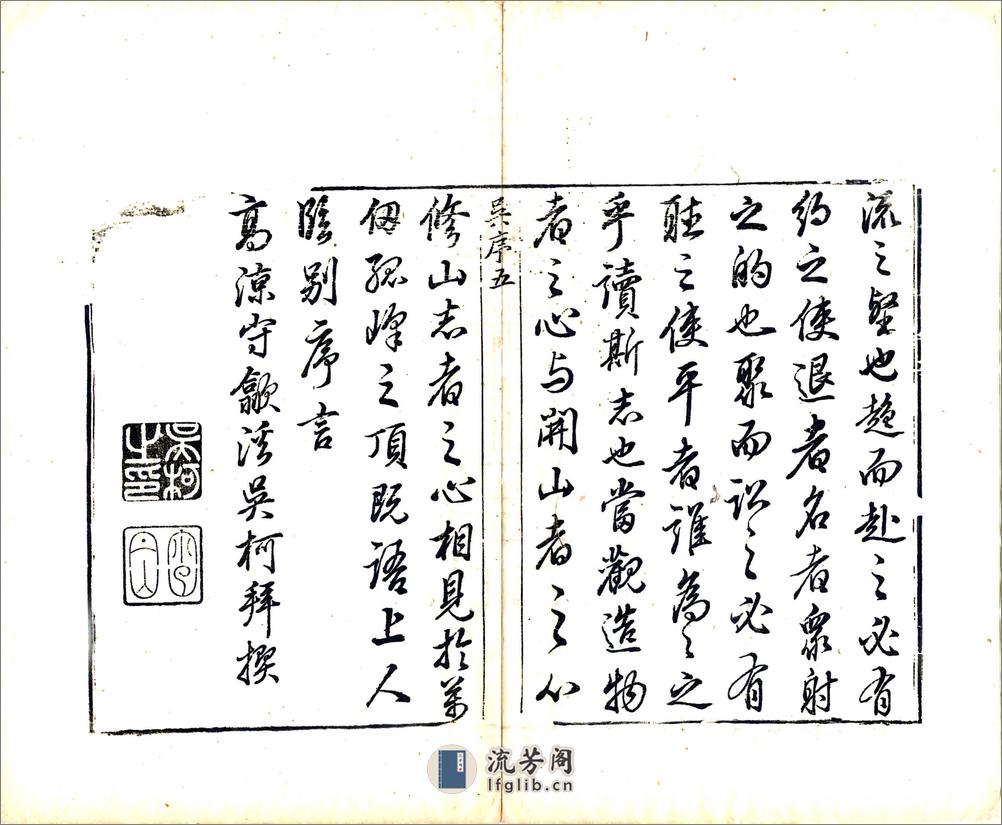 流之壑也趨而赴之必有
約之使退者名者眾射
之的也聚而訟之必有
聽之使平者誰為之
乎讀斯志也當觀造物
者之心与開山者之心
吳序五
修山志者之心相見於萬
仞孤峰之頂既語上人
臨別序言
高涼守歙溪吳柯拜撰
吳柯之印
流芳阁
lfglib.cn